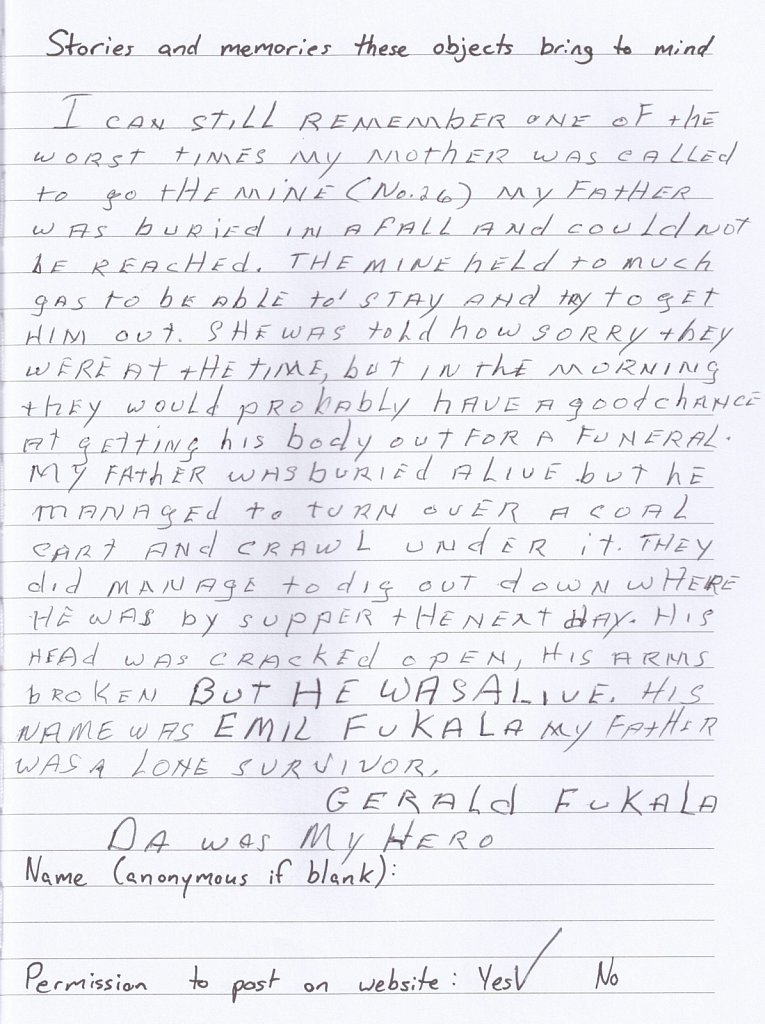 Stories and memories these objects bring to mind
I CAN STILL REMEMBER ONE OF thE
WORST TIMES MY MOTHER WAS CALLED
to go tHE MINE (No. 26) MY FATHER
WAS bURIEd IN A FALL ANd COULd NOT
bE REACHEd. THE MINE hELd to MUCH
gAS TO bE AbLE to' STAY ANd tRY TO gET
HIM OUT. SHE WAS tOLd hOW SORRY thEY
WERE AT tHE tIME, bUT IN thE MORNINg
thEY WOULd PRObAbLY hAVE A gOOd CHANCE
AT gETTINg his bOdY OUT FOR A FUNERAL.
MY FAthER WAS bURIEd ALIVE bUT hE
MANAgEd to TURN OVER A COAL
CART ANd CRAWL UNdER iT. THEY
did MANAGE to dig OUT dOWN WHERE
HE WAS by SUPPER tHE NEXT dAY. HIS
HEAd WAS CRACKEd OPEN, HIS ARMS
bROKEN BUT HE WAS ALIVE. HIS
NAME WAS EMIL FUKALA MY FATHER
WAS A LONE SURVIVOR.
GERALd FUKALA
DA WAS MY HERO
Name (anonymous if blank):
Permission to post on website: Yes✓ No